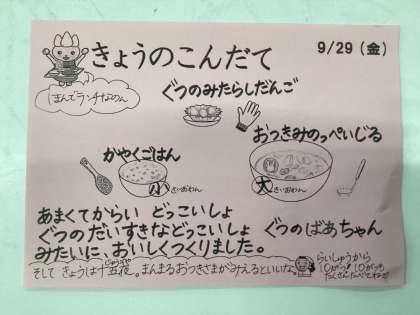 きょうのこんだて
9/29 (金)
ほんでランチなのん
ぐつのみたらしだんご
おつきみのっぺいじる
かやくごはん
小さいおわん
大きいおわん
あまくてからい どっこいしょ
ぐつのだいすきなどっこいしょ ぐつのばあちゃん
みたいに、おいしくつくりました。
そして きょうは十五夜。まんまるおつきさまがみえるといいな。
じゅうごや
らいしゅうから
10がつ! 10がつも
たくさんたべてね